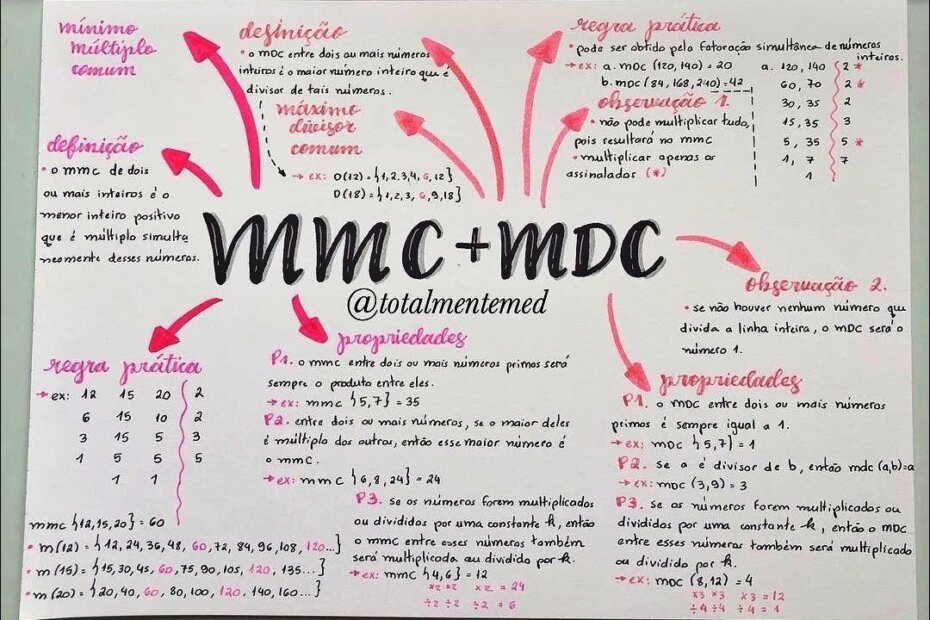 mínimo
múltiplo
comum
definição
• o mmc de dois
ou mais inteiros é o
menor inteiro positivo
que é múltiplo simulta
neamente desses números.
definição
• o mdc entre dois ou mais números
inteiros é o maior número inteiro que é
divisor de tais números.
máximo
divisor
comum
→ ex: D(12) = {1,2,3,4, 6,12}
D(18) = {1,2,3, 6,9,18}
regra prática
• pode ser obtido pela fatoração simultânea de números
inteiros.
→ ex: a. mDC (120,140) = 20
b. mDC (84,168,240) = 42
observação 1.
• não pode multiplicar tudo,
pois resultará no mmc
• multiplicar apenas os
assinalados (*)
a. 120, 140 2 *
60, 70 2 *
30, 35 2
15, 35 3
5, 35 5 *
1, 7 7
1
MMC + MDC
@totalmentemed
observação 2.
• se não houver nenhum número que
divida a linha inteira, o mDC será o
número 1.
regra prática
→ ex: 12 15 20 2
6 15 10 2
3 15 5 3
1 5 5 5
1 1
mmc {12,15,20} = 60
• m(12) = {12,24,36,48, 60,72, 84,96,108, 120...}
• m(15) = {15,30,45, 60,75,90,105, 120, 135...}
• m(20) = {20,40, 60, 80,100, 120, 140,160...}
propriedades
P1. o mmc entre dois ou mais números primos será
sempre o produto entre eles.
→ ex: mmc {5,7} = 35
P2. entre dois ou mais números, se o maior deles
é múltiplo dos outros, então esse maior número é
o mmc.
→ ex: mmc {6,8,24} = 24
P3. se os números forem multiplicados
ou divididos por uma constante k, então
o mmc entre esses números também
será multiplicado ou dividido por k.
→ ex: mmc {4,6} = 12
x2 x2 x2 = 24
÷2 ÷2 ÷2 = 6
propriedades
P1. o mDC entre dois ou mais números
primos é sempre igual a 1.
→ ex: mDC {5,7} = 1
P2. se a é divisor de b, então mdc (a,b)=a
→ ex: mDC (3,9) = 3
P3. se os números forem multiplicados ou
divididos por uma constante k, então o mDC
entre esses números também será multiplicado
ou dividido por k.
→ ex: mDC (8,12) = 4
x3 x3 x3 = 12
÷4 ÷4 ÷4 = 1